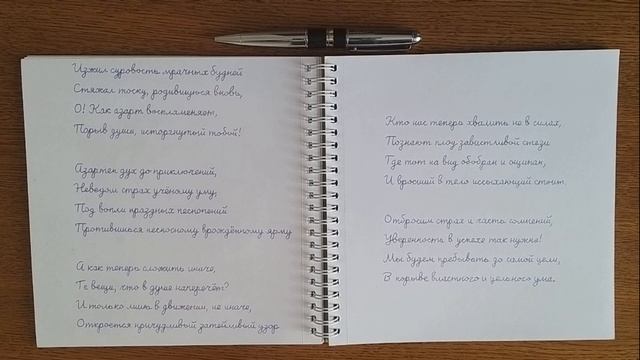 Изжил суровость мрачных будней
Стяжал тоску, родившуюся вновь,
О! Как азарт воспламеняет,
Порыв души, исторгнутый тобой!
Азартен дух до приключений,
Неведом страх учёному уму,
Под вопли праздных песнопений
Противишься несносному врождённому ярму
А как теперь сложить иначе,
Те вещи, что в душе наперечёт?
И только лишь в движении, не иначе,
Откроется причудливый затейливый узор
Кто нас теперь хвалить не в силах,
Познают плод завистливой стези
Где тот на вид ободран и ощипан,
И вросший в тело иссыхающий стоит.
Отбросим страх и часть сомнений,
Уверенность в успехе так нужна!
Мы будем пребывать до самой цели,
В порыве властного и цельного ума.